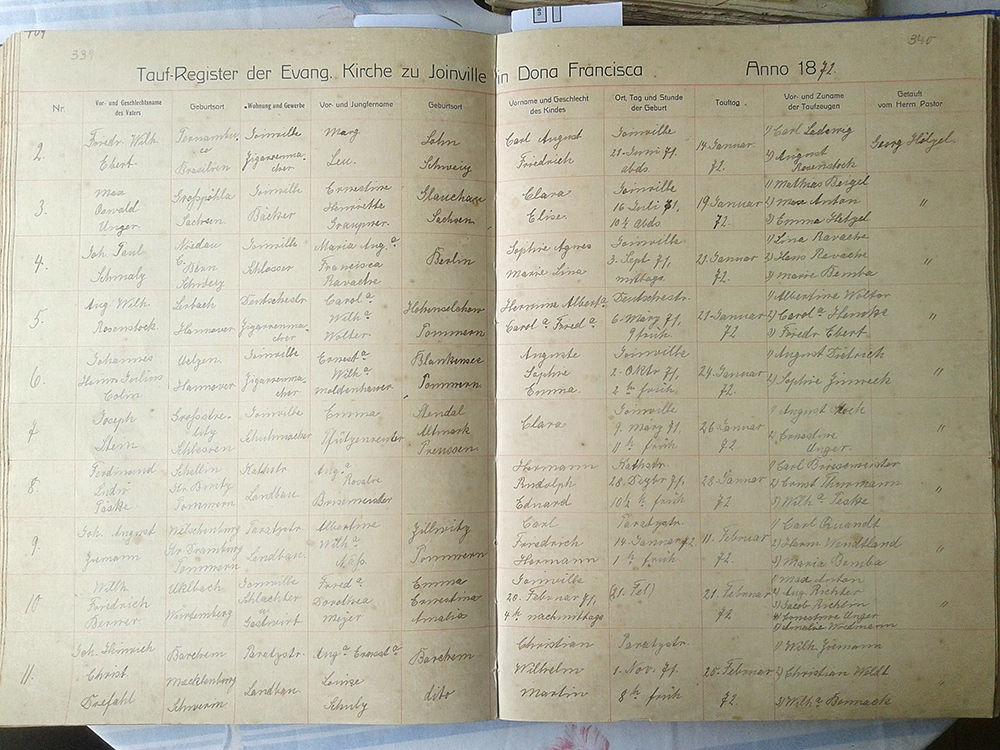 339
340
Tauf-Register der Evang. Kirche zu Joinville in Dona Francisca Anno 1872.
Nr. Vor- und Geschlechtsname des Vaters Geburtsort Wohnung und Gewerbe Vor- und Jungfername Geburtsort Vorname und Geschlecht des Kindes Ort, Tag und Stunde der Geburt Tauftag Vor- und Zuname der Taufzeugen Getauft vom Herrn Pastor
2. Friedr. Wilh. Joinville Marg. Sohn Carl August Joinville 1) Carl Ludwig Georg Hölzel
Ebert. Brasilien Zigarrenmacher Leu. Schweiz Friedrich 21. Juni 71. abds 14 Januar 72. 2) August Rosenstock
3. Max Grosspöhla Joinville Ernestine Glauchau Clara Joinville 1) Mathias Beigel
Oswald Sachsen Bäcker Henriette Sachsen Elise. 16 Juli 71, 19 Januar 2) Max Anton "
Unger. Graupner. 10½ abds 72. 3) Emma Hetzel
4. Joh. Paul Joinville Maria Aug.a Berlin Sophie Agnes Joinville 1) Lina Ravache
Schmalz Bern Schlosser Francisca Marie Lina 3. Sept 71, 21. Januar 2) Hans Ravache "
Schweiz Ravache mittags 72. 3) Marie Bemba
5. Aug. Wilh. Lerbach Deutschestr. Carol.a Hohenselchow Hermine Albert.a Deutschestr. 1) Albertine Wolter
Rosenstock. Hannover Zigarrenmacher Wilh.a Pommern Carol.a Fried.a 6. März 71, 21. Januar 2) Carol.a Hencke "
Wolter 9 früh 72 3) Friedr Ebert
6. Johannes Uelzen, Joinville Ernest.a Blankensee Auguste Joinville 1) August Dietrich
Colin Hannover Zigarrenmacher Wilh.a Pommern Sophie 2. Oktr 71, 24 Januar "
Moldenhauer Emma. 2 h. früh 72. 2) Sophie Jinreck
7 Joseph Joinville Emma Stendal Clara Joinville 1) August Koch
Stein Schlesien Schuhmacher Pfützenreuter Altmark 9. März 71, 26. Januar 2) Ernestine
Preussen 11 h. früh 72. Anger.
8. Ferdinand Schellin Kathstr. Aug.a Hermann Kathstr. 1) Carl Briesemeister
Ludw Landbau. Rosalie Rudolph 28. Dezbr 71, 28. Januar 2) Ernst Thurmann "
Päske Pommern Brisemeister Eduard 10½ h. früh 72 3) Wilh.a Peske
9. Joh. August Paratystr. Albertine Zillwitz Carl Paratystr. 1) Carl Quandt
Ziemann Kr. Dramburg Landbau. Wilh.a Pommern Friedrich 14. Januar 72. 11. Februar 2) Herm. Wendtland "
Pommern Hermann 1 h. früh 72. 3) Maria Bemba
10 Wilh. Joinville Fried.a Emma Joinville 1) Max Anton
Friedrich Schlachter Dorothea Ernestina 20. Februar 71, (21. Feb) 21. Februar 2) Aug Richter
Berner Würtemberg Gastwirt Meyer Amalia 4 h. nachmittags 72 3) Jacob Richlin "
4) Ernestine Anger
5) Amalie Wiedmann
11. Joh. Heinrich Barchem Paratystr. Aug.a Barchem Christian Paratystr. 1) Wilh. Ziemann
Christ Mecklenburg Louise Wilhelm 1. Nov. 71. 20. Februar 2) Christian Wildt "
Drefahl Schwerin Landbau. Schulz dito Martin 8 h. früh 72. 3) Wilh.a Bennack